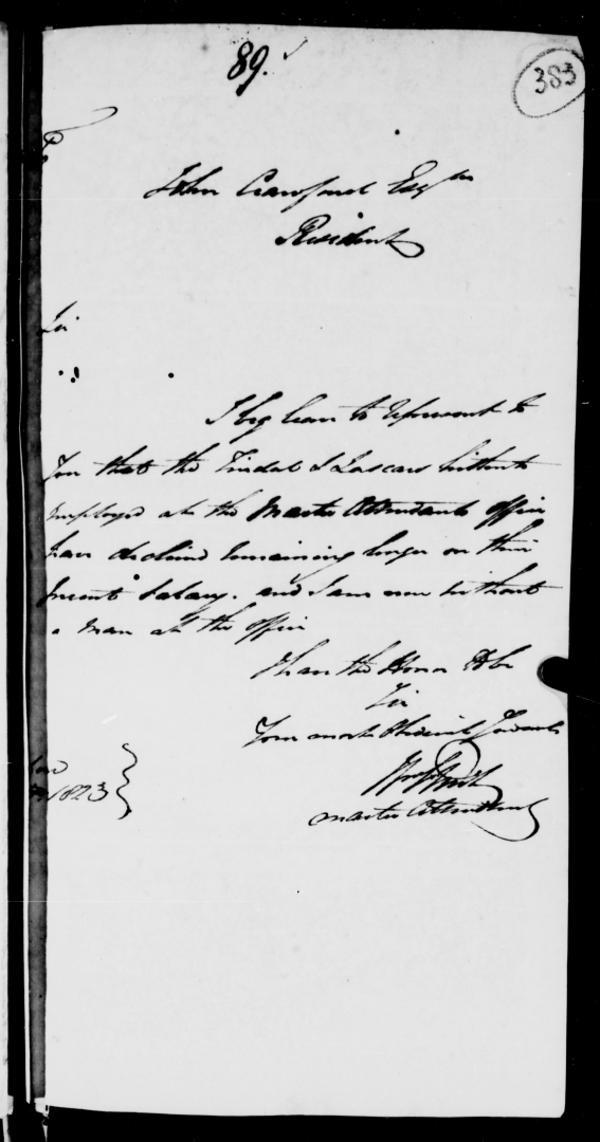 89.
383
To
John Crawfurd Esqre
Resident
Sir
I beg leave to represent to
You that the Tindal & Lascars hitherto
employed at the Master Attendants office
have declined remaining longer on their
present Salary. and I am now without
a man at the office
I have the Honor to be
Sir
Your most Obedient Servant
Master Attendant
1823